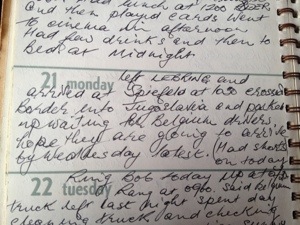 had lunch at 1200
and then played cards went
to cinema in afternoon
Had few drinks and then to
Bed at Midnight.
21 monday left LEBRING and
arrived at Spiefeld at 1030 crossed
Border into Jugoslavia and parked
up waiting for Belgium drivers,
hope they are going to arrive
by Wednesday latest. (Had shorts
on today
22 tuesday Rang Bob today
Rang at 0900. Said Belgium
truck left last night spent day
cleaning truck and checking